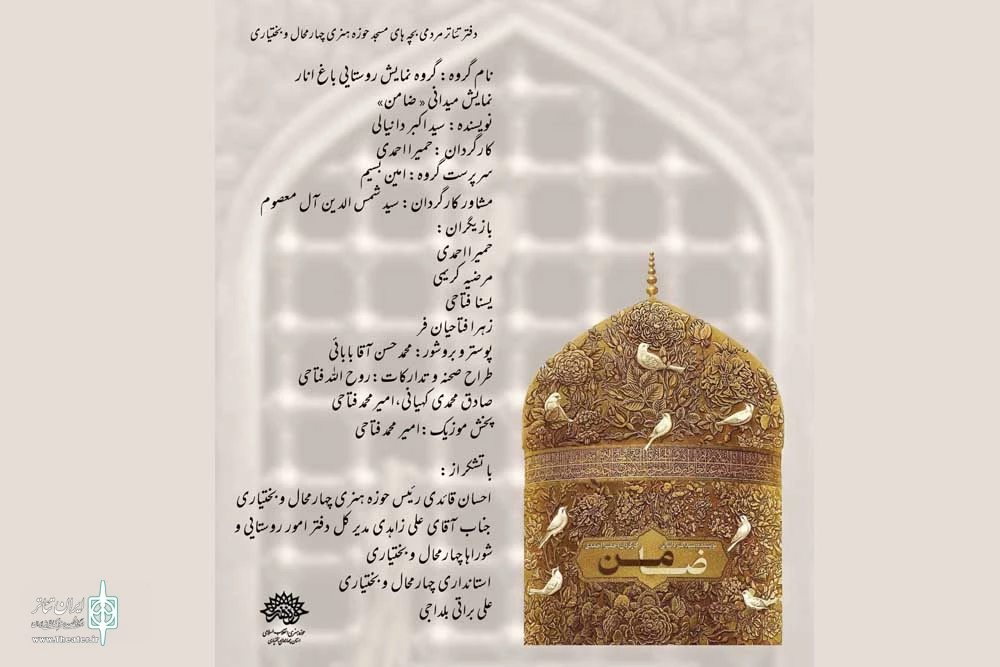 دفتر تئاتر مردمی بچه های مسجد حوزه هنری چهارمحال و بختیاری
نام گروه : گروه نمایش روستایی باغ انار
نمایش میدانی « ضامن»
نویسنده : سید اکبر دانیالی
کارگردان : حمیرا احمدی
سرپرست گروه : امین بسیم
مشاور کارگردان : سید شمس الدین آل معصوم
بازیگران :
حمیرا احمدی
مرضیه کریمی
یسنا فتاحی
زهرا فتاحیان فر
پوستر و بروشور : محمد حسن آقا بابائی
طراح صحنه و تدارکات : روح الله فتاحی
صادق محمدی کهیانی، امیر محمد فتاحی
پخش موزیک : امیر محمد فتاحی
با تشکر از :
احسان قائدی رئیس حوزه هنری چهارمحال و بختیاری
جناب آقای علی زاهدی مدیر کل دفتر امور روستایی و
شوراها چهارمحال و بختیاری
استانداری چهارمحال و بختیاری
علی براتی بلداجی
ضامن
حوزه هنری انقلاب اسلامی
استان چهارمحال و بختیاری
ایران تئاتر
www.Theater.ir